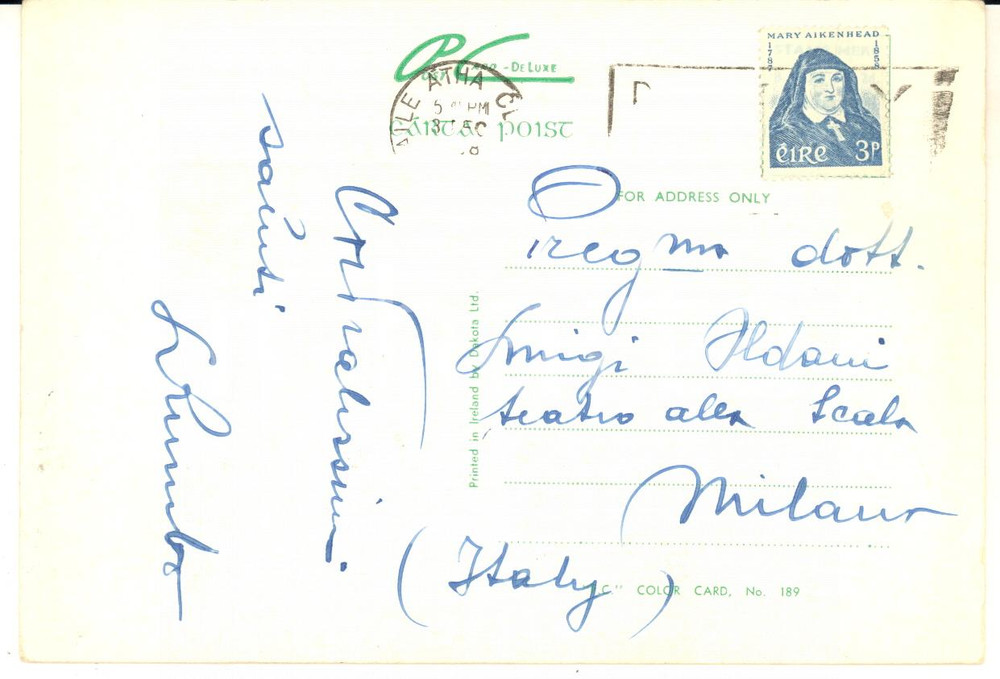 Post Card - DeLuxe
CÁRTA POIST
AILE ÁTHA CL
PM
MARY AIKENHEAD
1787
1858
éire 3P
FOR ADDRESS ONLY
dott.
Luigi Oldani
teatro alla Scala
Milano
(Italy)
"C" COLOR CARD, No. 189
Printed in Ireland by Dakota Ltd.
Cordialissimi
saluti